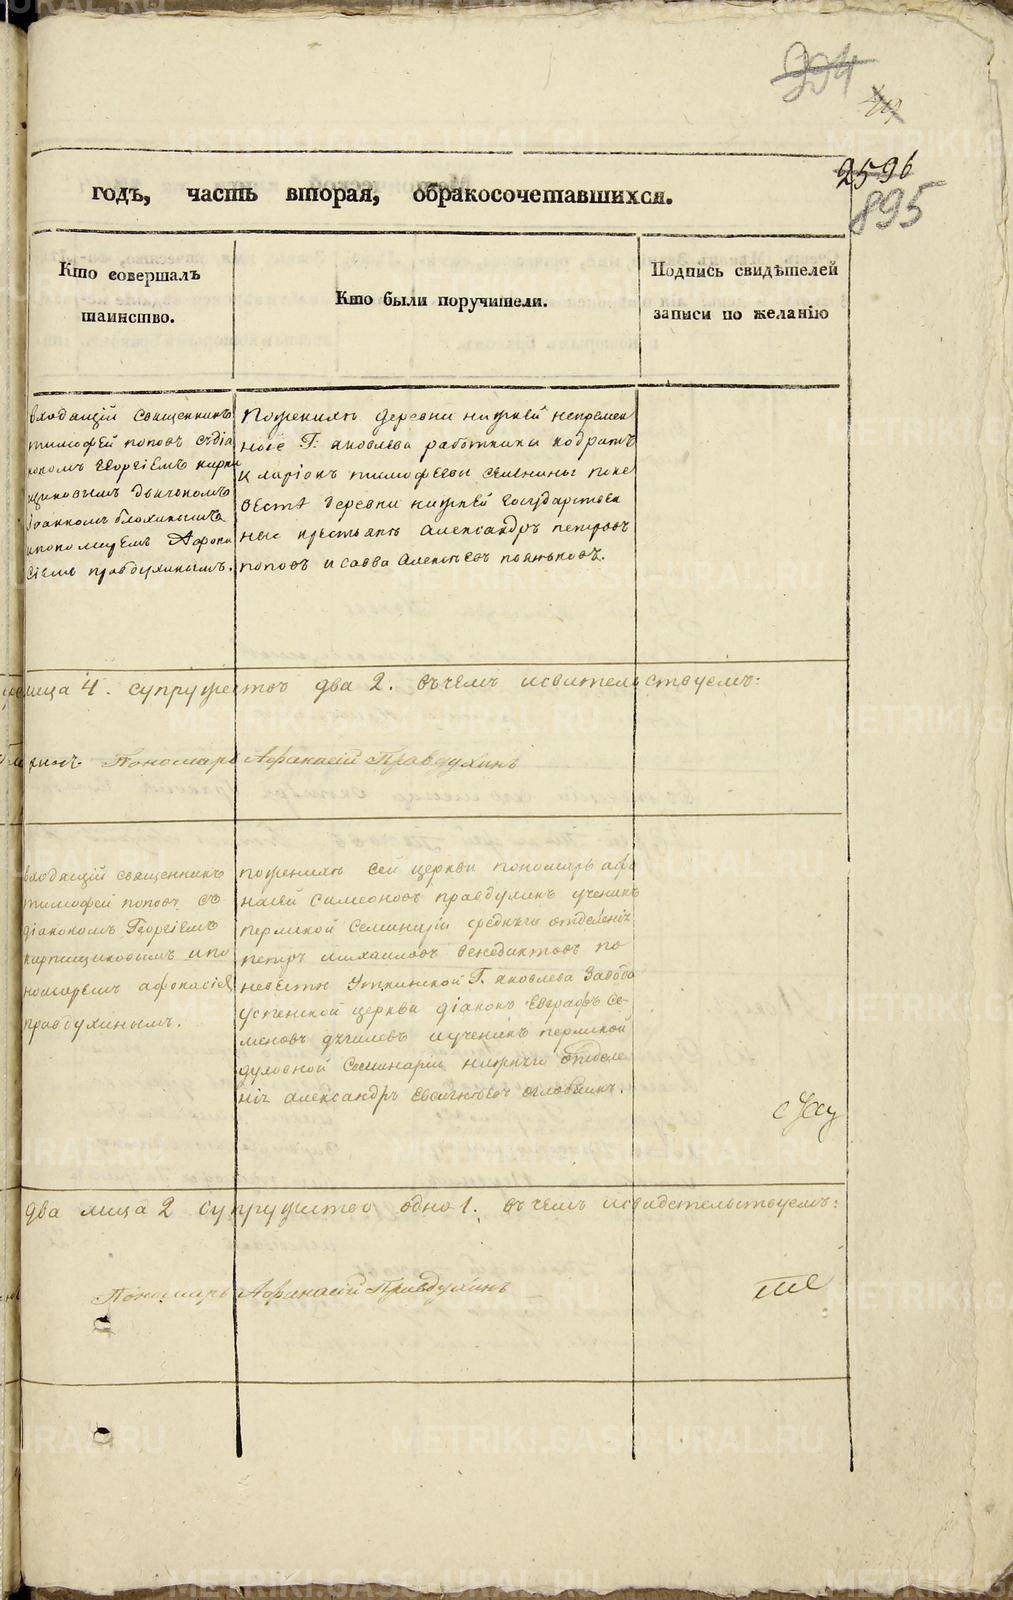 904
2596
895
годъ, часть вторая, обракосочетавшихся.
Кто совершалъ
таинство.
Кто были поручители.
Подпись свидѣтелей
записи по желанію
входящій священникъ
тимофей поповъ съ діа
кономъ георгіемъ кирпи
щиковымъ дьячкомъ
Іоанномъ блохинымъ
ипономаремъ Афона
сіемъ правдухинымъ.
Поженихѣ деревни нижней непремен
ные Г. яковлева работники кодратъ
и ларіонъ тимофеевы семенины поне
вестѣ деревни нижней государствен
ные крестьяне александръ петровъ
поповъ и савва алексѣевъ
лица 4. супружествъ два 2. въ чемъ исвидетельствуемъ:
Пономарь Афанасій Правдухинъ
входящій священникъ
тимофей поповъ съ
діакономъ Георгіемъ
кирпищиковымъ ипо
номаремъ афонасіем
правдухинымъ.
поженихѣ сей церкви пономарь афо
насей симеоновъ правдухинъ ученикъ
пермской Семинаріи среднего отделенія
петръ михайловъ венедиктовъ по
невестѣ Уткинской Г. яковлева Завода
успенской церкви діаконъ Евграфъ Се
меновъ дягилевъ иученикъ пермской
духовной Семинаріи нижнего отделе
нія александръ
два лица 2 супружество одно 1. въ чемъ исвидетельствуемъ:
Пономарь Афанасій Правдухинъ
METRIKI.GASO-URAL.RU